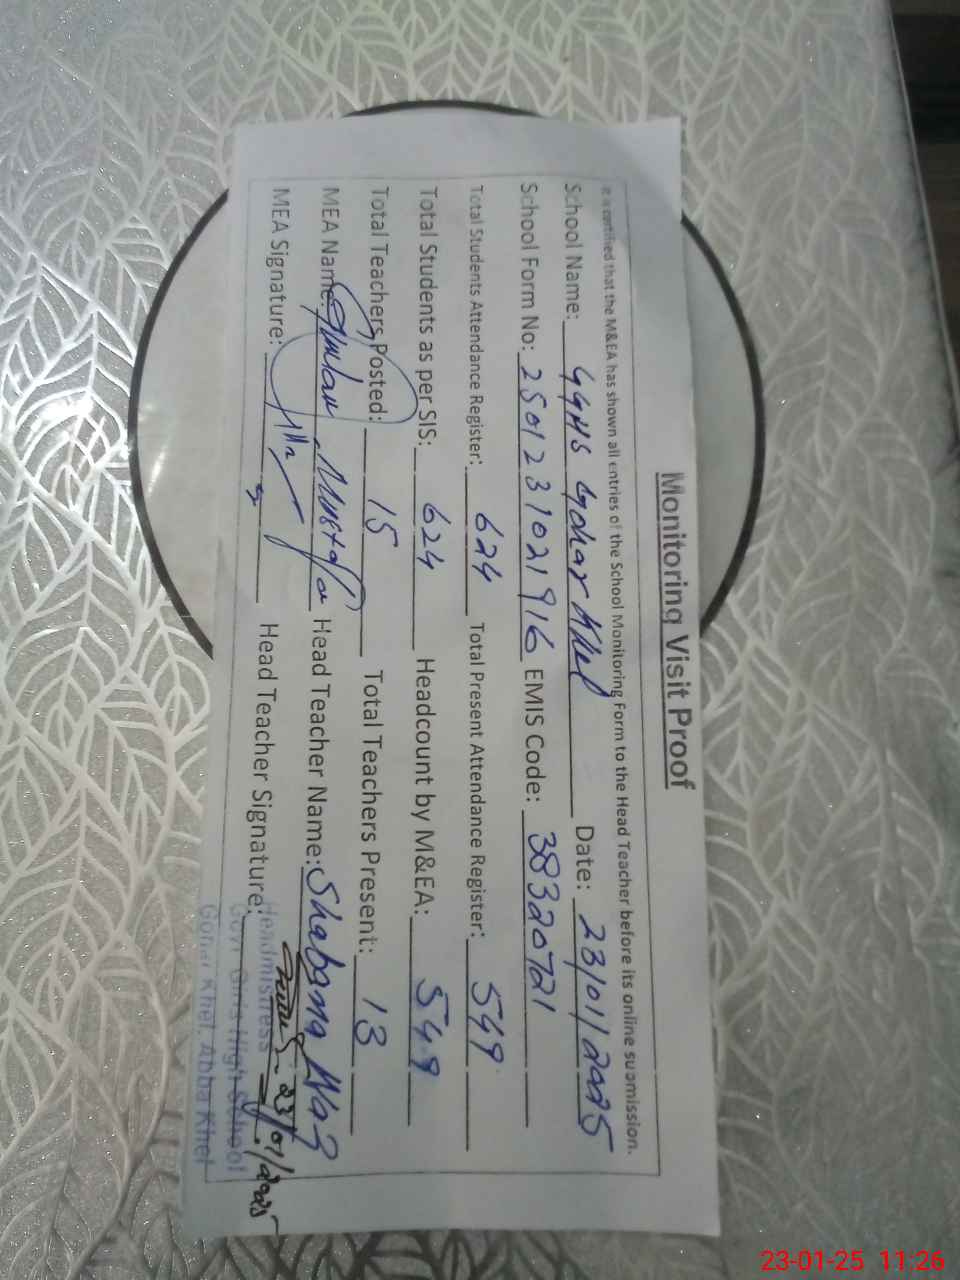 Monitoring Visit Proof
It is certified that the M&EA has shown all entries of the School Monitoring Form to the Head Teacher before its online submission.
School Name: GGHS Gohar Khel Date: 23/01/2025
School Form No: 2501231021916 EMIS Code: 38320721
Total Students Attendance Register: 624 Total Present Attendance Register: 549
Total Students as per SIS: 624 Headcount by M&EA: 549
Total Teachers Posted: 15 Total Teachers Present: 13
MEA Name: Ghulam Mustafa Head Teacher Name: Shabana Naz
MEA Signature: Head Teacher Signature: 23/01/2025
Headmistress
Govt Girls High School
Gohar Khel Abba Khel
23-01-25 11:26